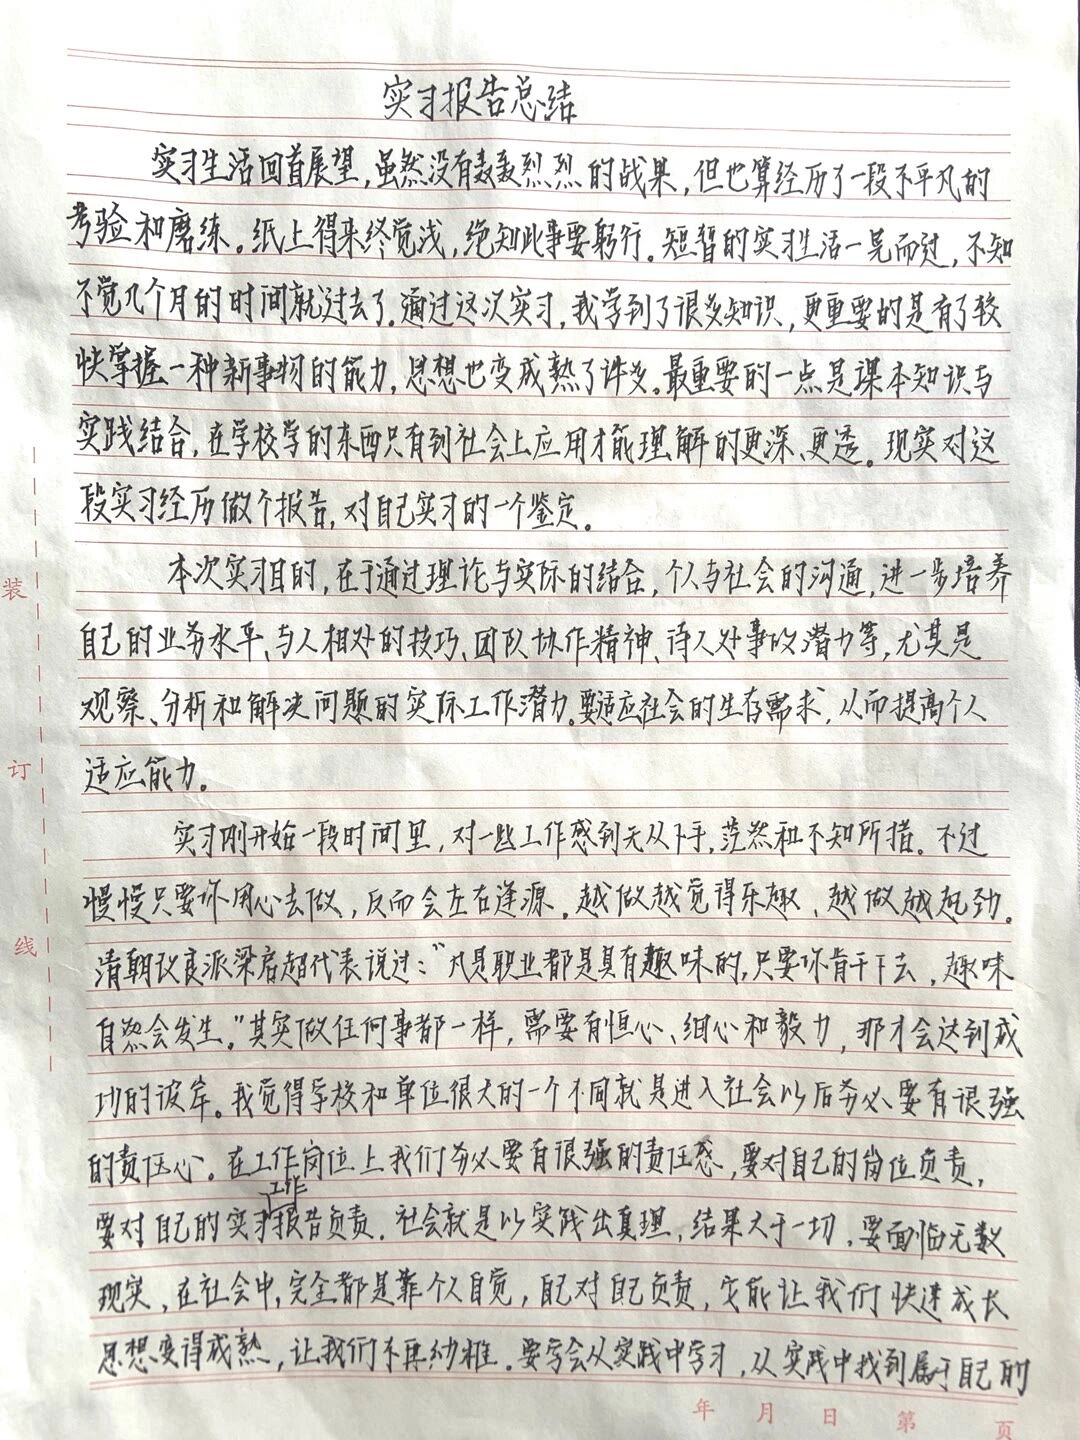 实习报告总结
实习生活回首展望，虽然没有轰轰烈烈的战果，但也算经历了一段不平凡的
考验和磨练。纸上得来终觉浅，绝知此事要躬行。短暂的实习生活一晃而过，不知
不觉几个月的时间就过去了。通过这次实习，我学到了很多知识，更重要的是有了较
快掌握一种新事物的能力，思想也变成熟了许多。最重要的一点是课本知识与
实践结合，在学校学的东西只有到社会上应用才能理解的更深、更透。现实对这
段实习经历做个报告，对自己实习的一个鉴定。
本次实习目的，在于通过理论与实际的结合，个人与社会的沟通，进一步培养
自己的业务水平、与人相处的技巧、团队协作精神、待人处事的潜力等，尤其是
观察、分析和解决问题的实际工作潜力。要适应社会的生存需求，从而提高个人
适应能力。
实习刚开始一段时间里，对一些工作感到无从下手，茫然和不知所措。不过
慢慢只要你用心去做，反而会左右逢源。越做越觉得乐趣、越做越起劲。
清朝改良派梁启超代表说过：“凡是职业都是具有趣味的，只要你肯干下去，趣味
自然会发生。”其实做任何事都一样，需要有恒心、细心和毅力，那才会达到成
功的彼岸。我觉得学校和单位很大的一个不同就是进入社会以后务必要有很强
的责任心。在工作岗位上我们务必要有很强的责任感，要对自己的岗位负责，
工作
要对自己的实习报告负责。社会就是以实践出真理，结果大于一切，要面临无数
现实，在社会中，完全都是靠个人自觉，自己对自己负责，才能让我们快速成长
思想变得成熟，让我们不再幼稚。要学会从实践中学习，从实践中找到属于自己的
装
订
线
年 月 日 第 页